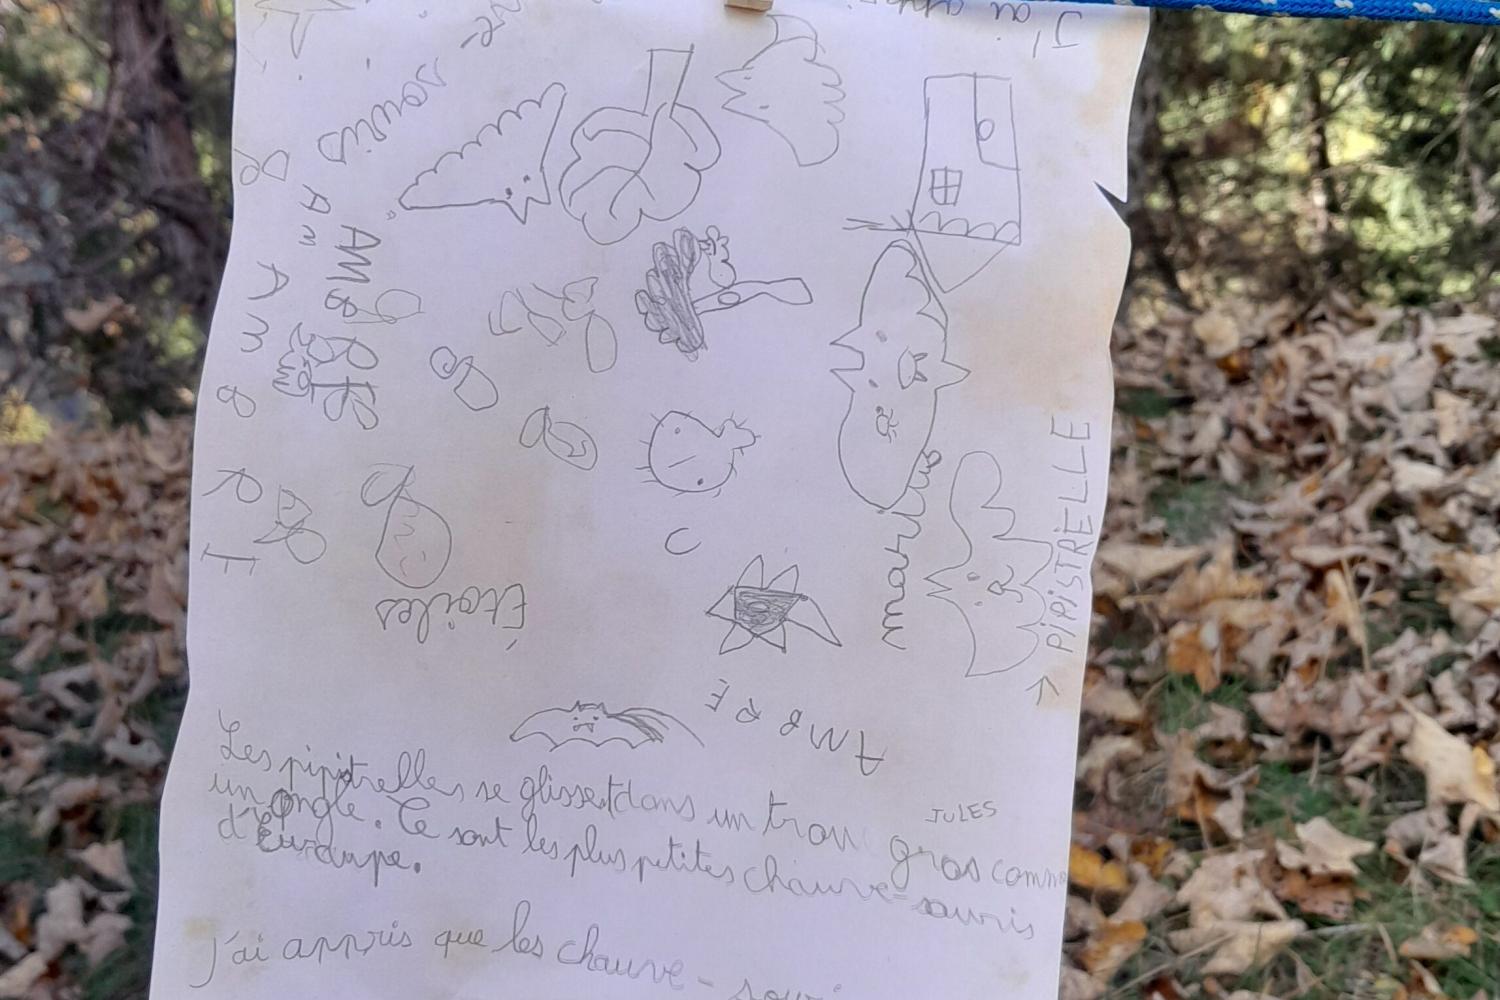 J'ai appri
souris
AMBRE
AMBRE
Étoiles
marius
PIPISTRELLE
AMBRE
JULES
Les pipitrelles se glisset dans un trou gros comme
un ongle. Ce sont les plus petites chauve-souris
d'Europe.
J'ai appris que les chauve-souri